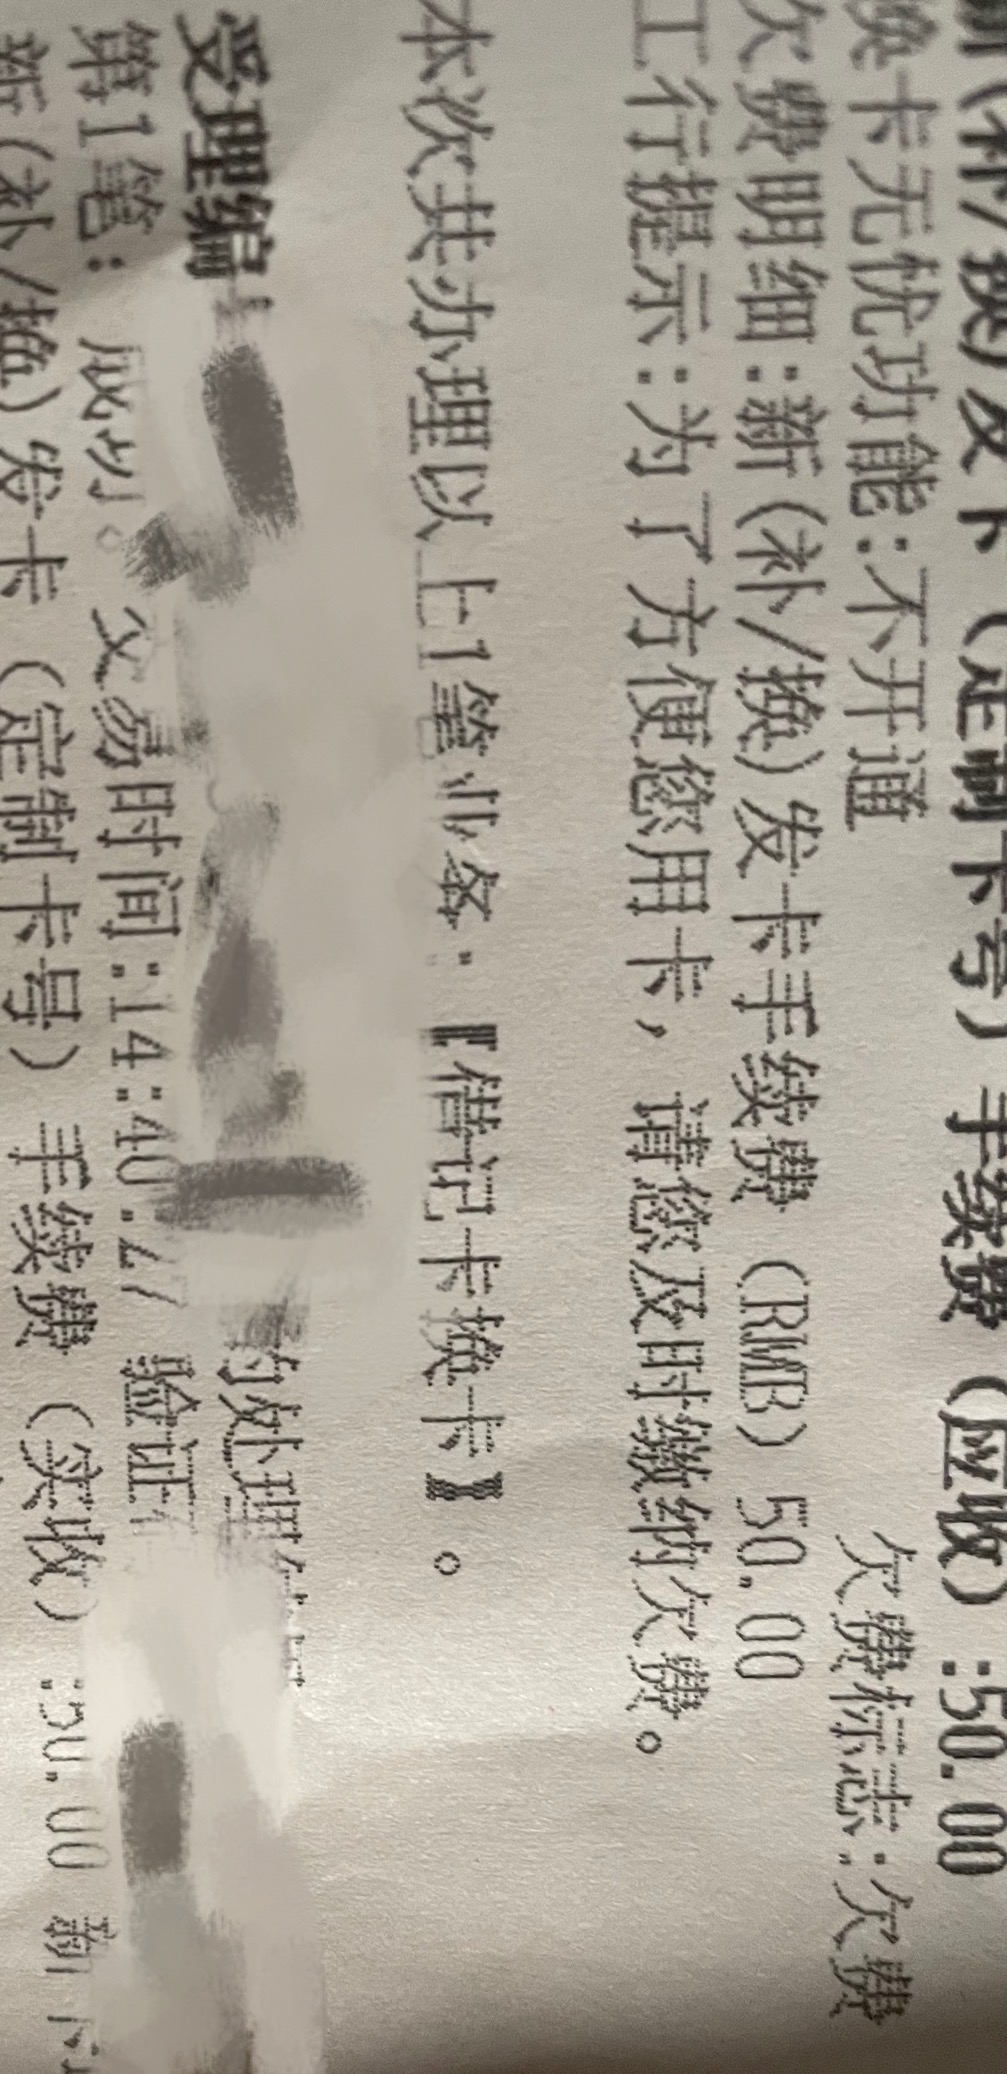 新(补/换)发卡(定制卡号)手续费(应收):50.00
换卡无忧功能:不开通 欠费标志:欠费
欠费明细:新(补/换)发卡手续费(RMB)50.00
工行提示:为了方便您用卡,请您及时缴纳欠费。
本次共办理以上1笔业务:【借记卡换卡】。
受理编
第1笔: 成功。 交易时间:14:40:27 验证
新(补/换)发卡(定制卡号)手续费(实收):50.00 新